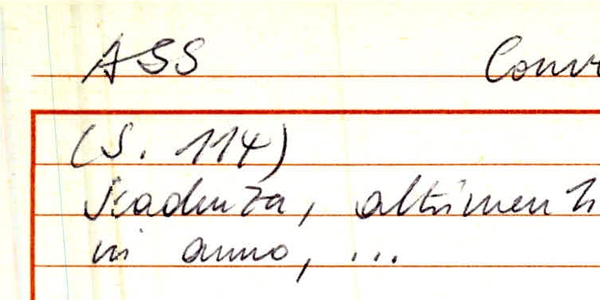 ASS Conv
(S. 114)
scadenza, altrimenti
in anno, ...